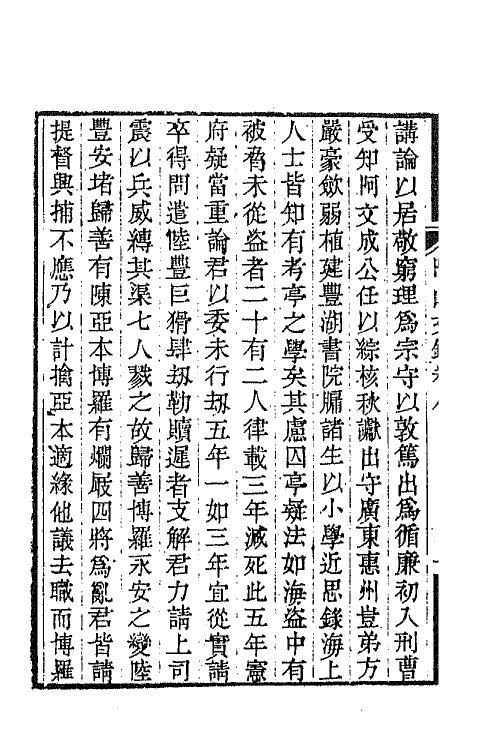 講論以居敬窮理爲宗守以敦篤出爲循廉初入刑曹
受知阿文成公任以綜核秋讞出守廣東惠州豈弟方
嚴豪斂弱植建豐湖書院牖諸生以小學近思錄海上
人士皆知有考亭之學矣其慮囚亭疑法如海盜中有
被脅未從盜者二十有二人律載三年減死此五年憲
府疑當重論君以委未行刼五年一如三年宜從實請
卒得問遣陸豐巨猾肆刼勒贖遲者支解君力請上司
震以兵威縛其渠七人戮之故歸善博羅永安之變陸
豐安堵歸善有陳亞本博羅有爛屐四將爲亂君皆請
提督與捕不應乃以計擒亞本適緣他議去職而博羅